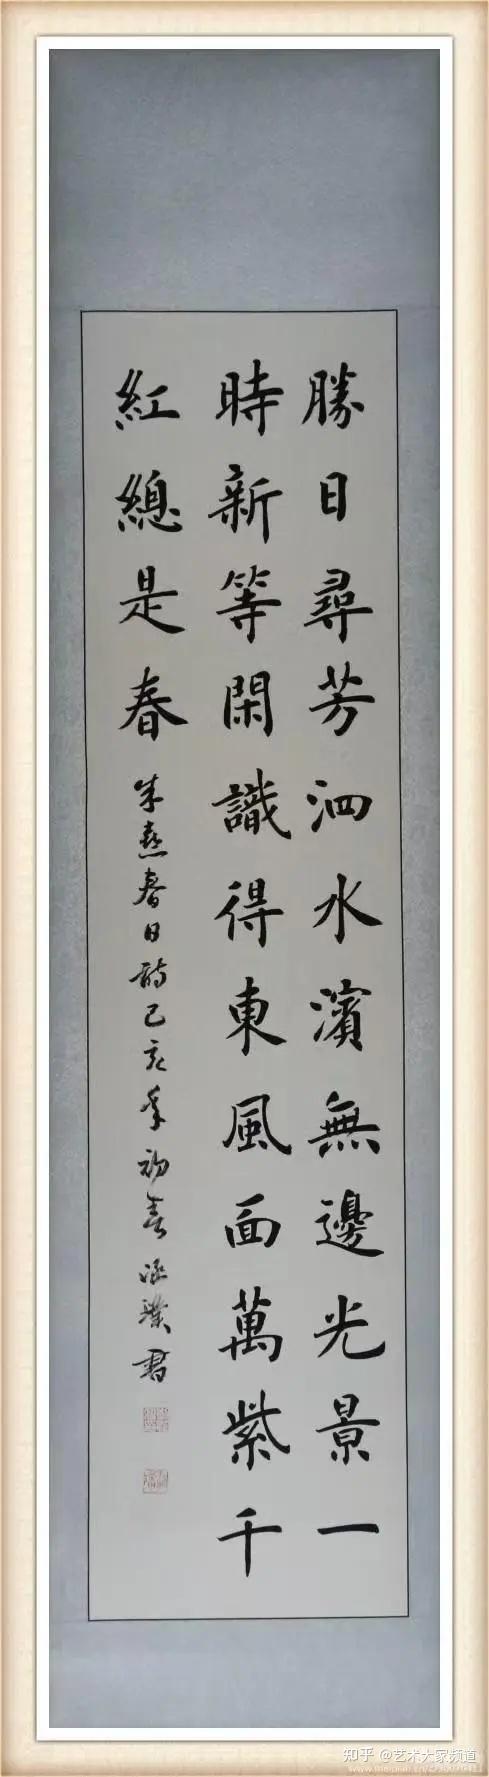 勝日尋芳泗水濱無邊光景一
時新等閑識得東風面萬紫千
紅總是春
朱熹春日詩己亥年初春涵璞書
知乎 @艺术大家频道